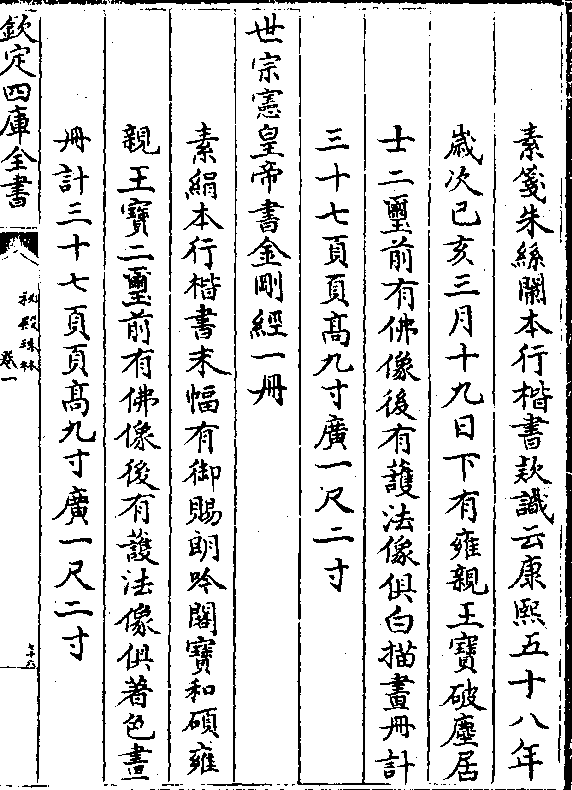 素箋朱絲闌本行楷書款識云康熙五十八年
歲次己亥三月十九日下有雍親王寶破塵居
士二璽前有佛像後有䕶法像俱白描畫冊計
三十七頁頁髙九寸廣一尺二寸
世宗憲皇帝書金剛經一冊
素絹本行楷書末幅有御賜朗吟閣寶和碩雍
親王寶二璽前有佛像後有䕶法像俱著色畫
冊計三十七頁頁髙九寸廣一尺二寸
欽定四庫全書
祕殿珠林
卷一